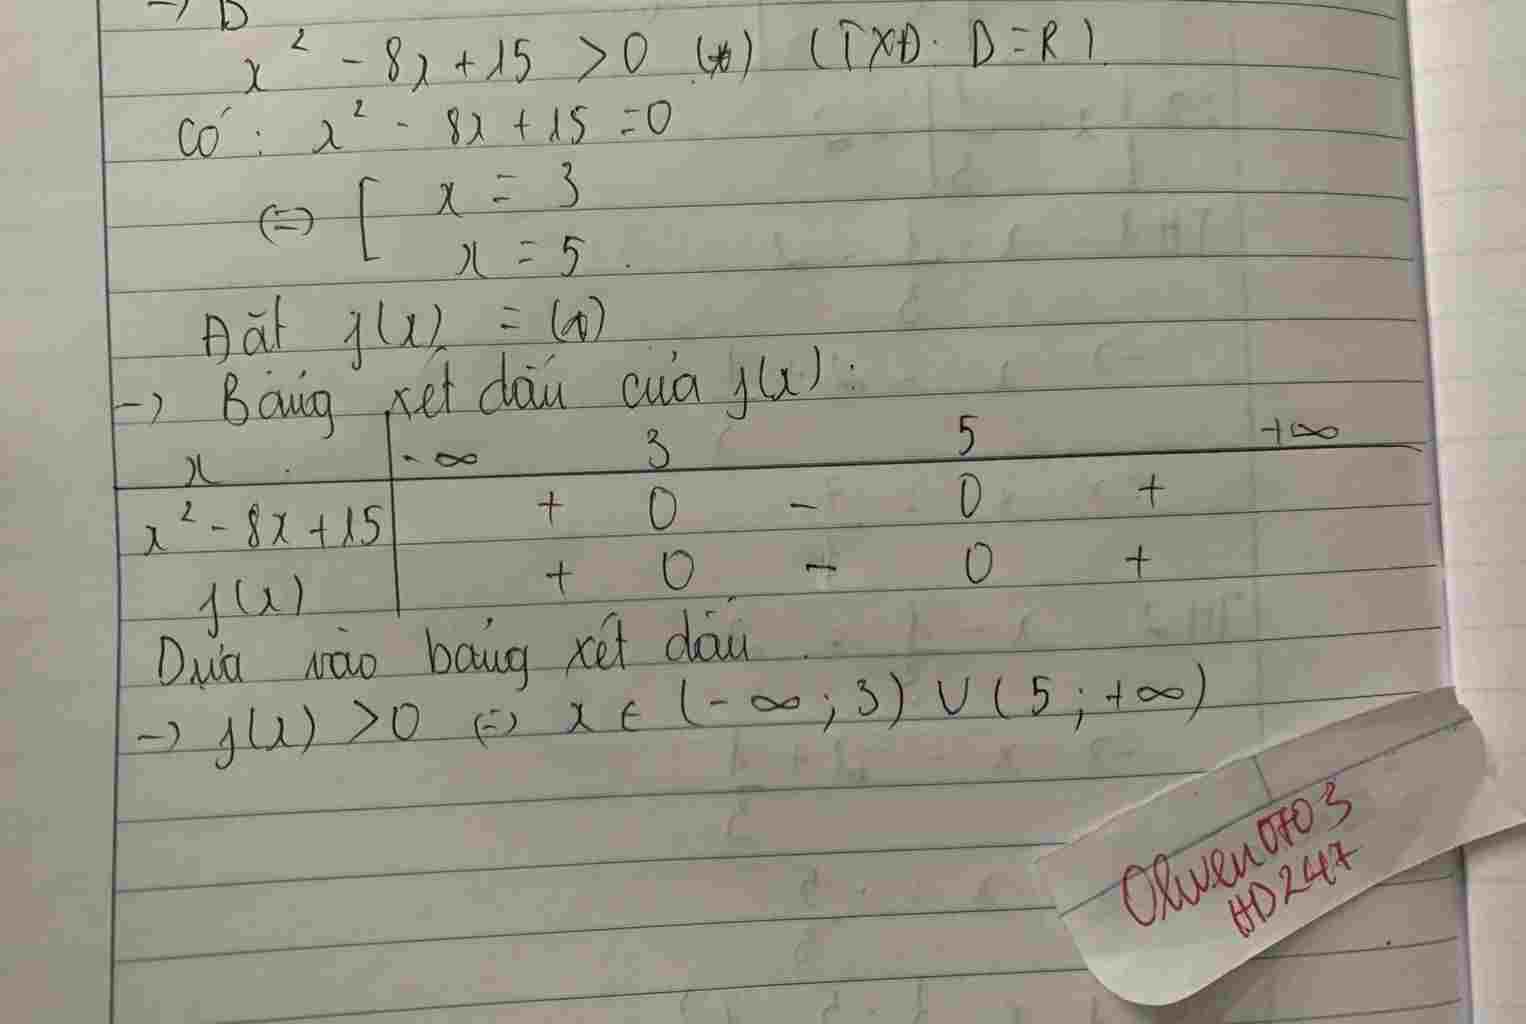 → D
x² - 8x + 15 > 0 (*) (TXĐ. D = R).
Có: x² - 8x + 15 = 0
(=) [ x = 3
x = 5.
Đặt f(x) = (*)
→ Bảng xét dấu của f(x):
x -∞ 3 5 +∞
x² - 8x + 15 + 0 - 0 +
f(x) + 0 - 0 +
Dựa vào bảng xét dấu
→ f(x) > 0 (=) x ∈ (-∞; 3) ∪ (5; +∞)
HD247